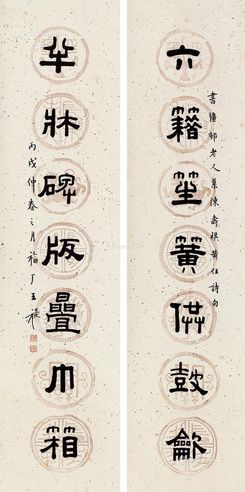 六籍笙簧供鼓龡
書邨老人集陳壽祺黄任詩句
半牀碑版疊巾箱
丙戌仲春之月福厂王禔